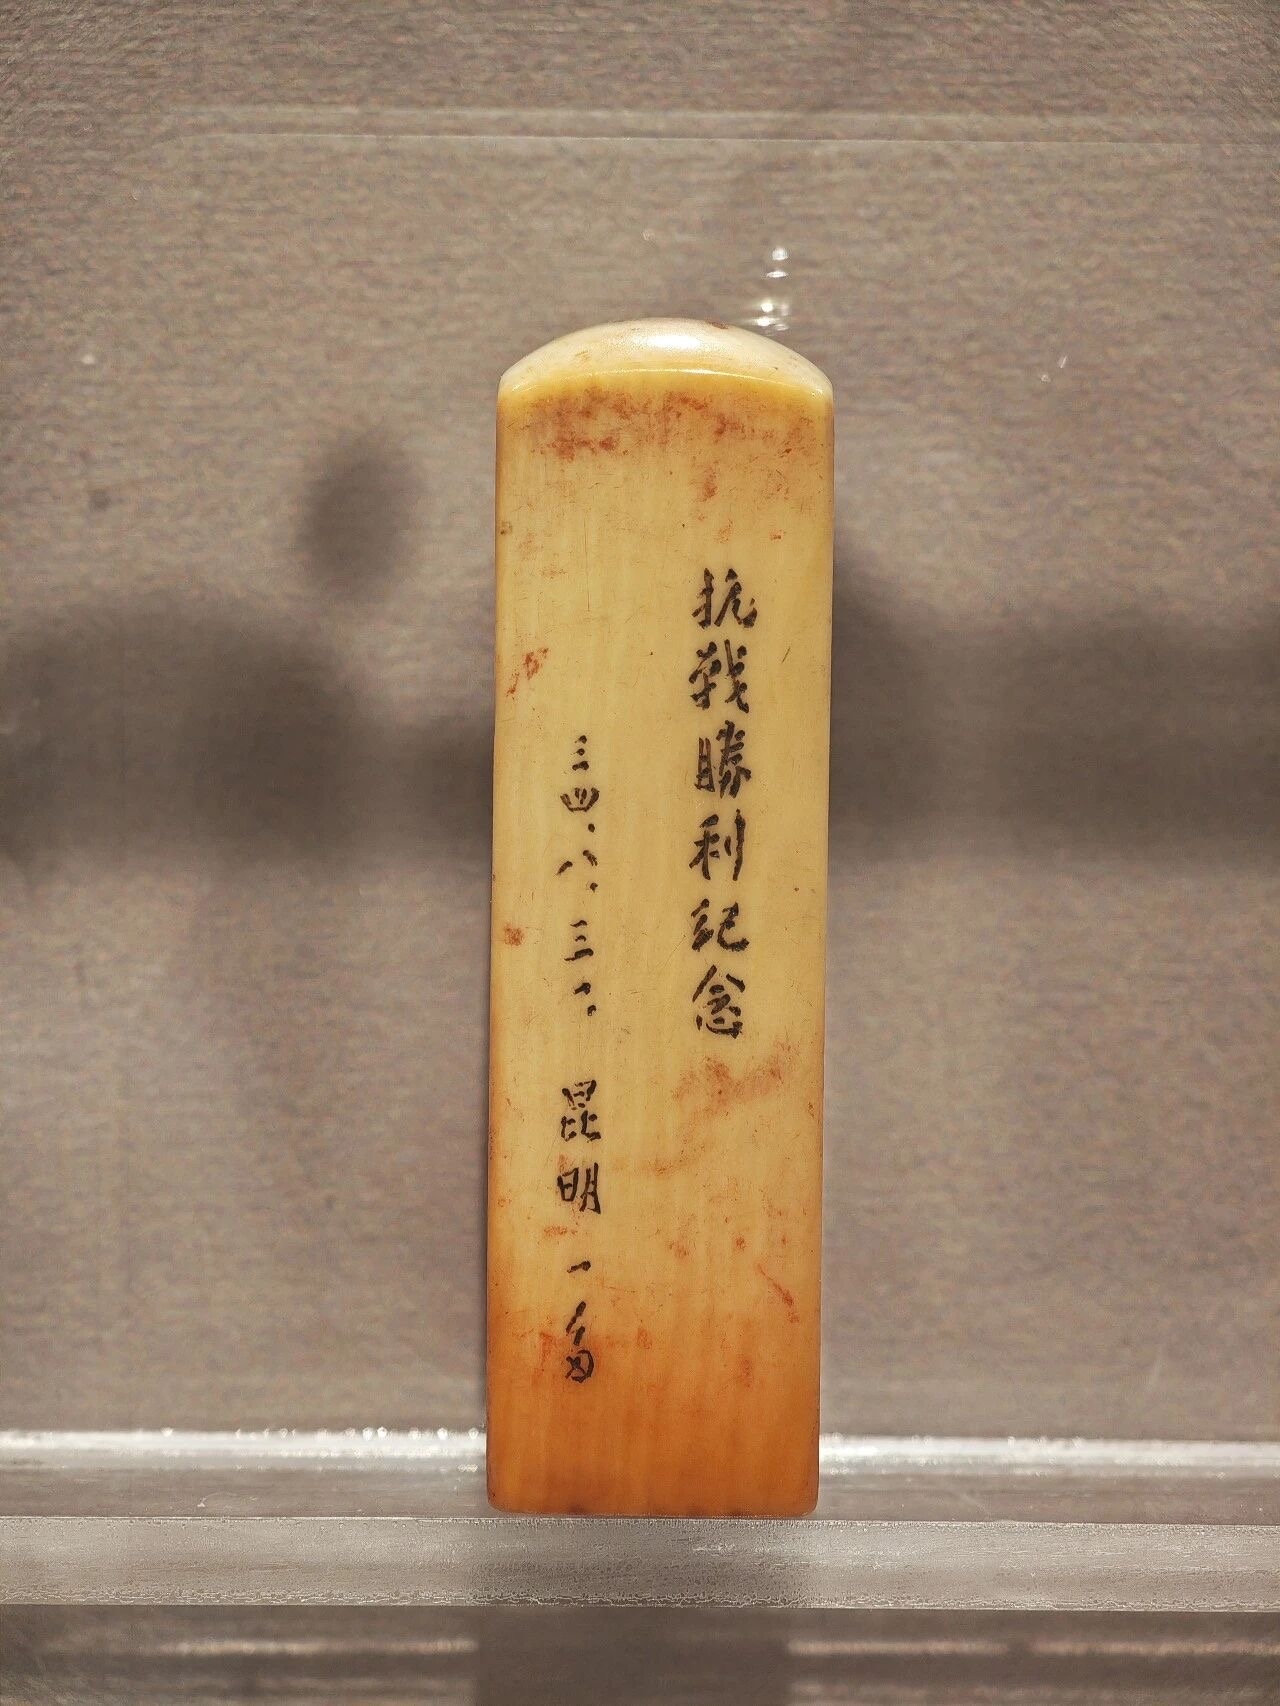 抗戰勝利紀念
三四.八.三一. 昆明 一多